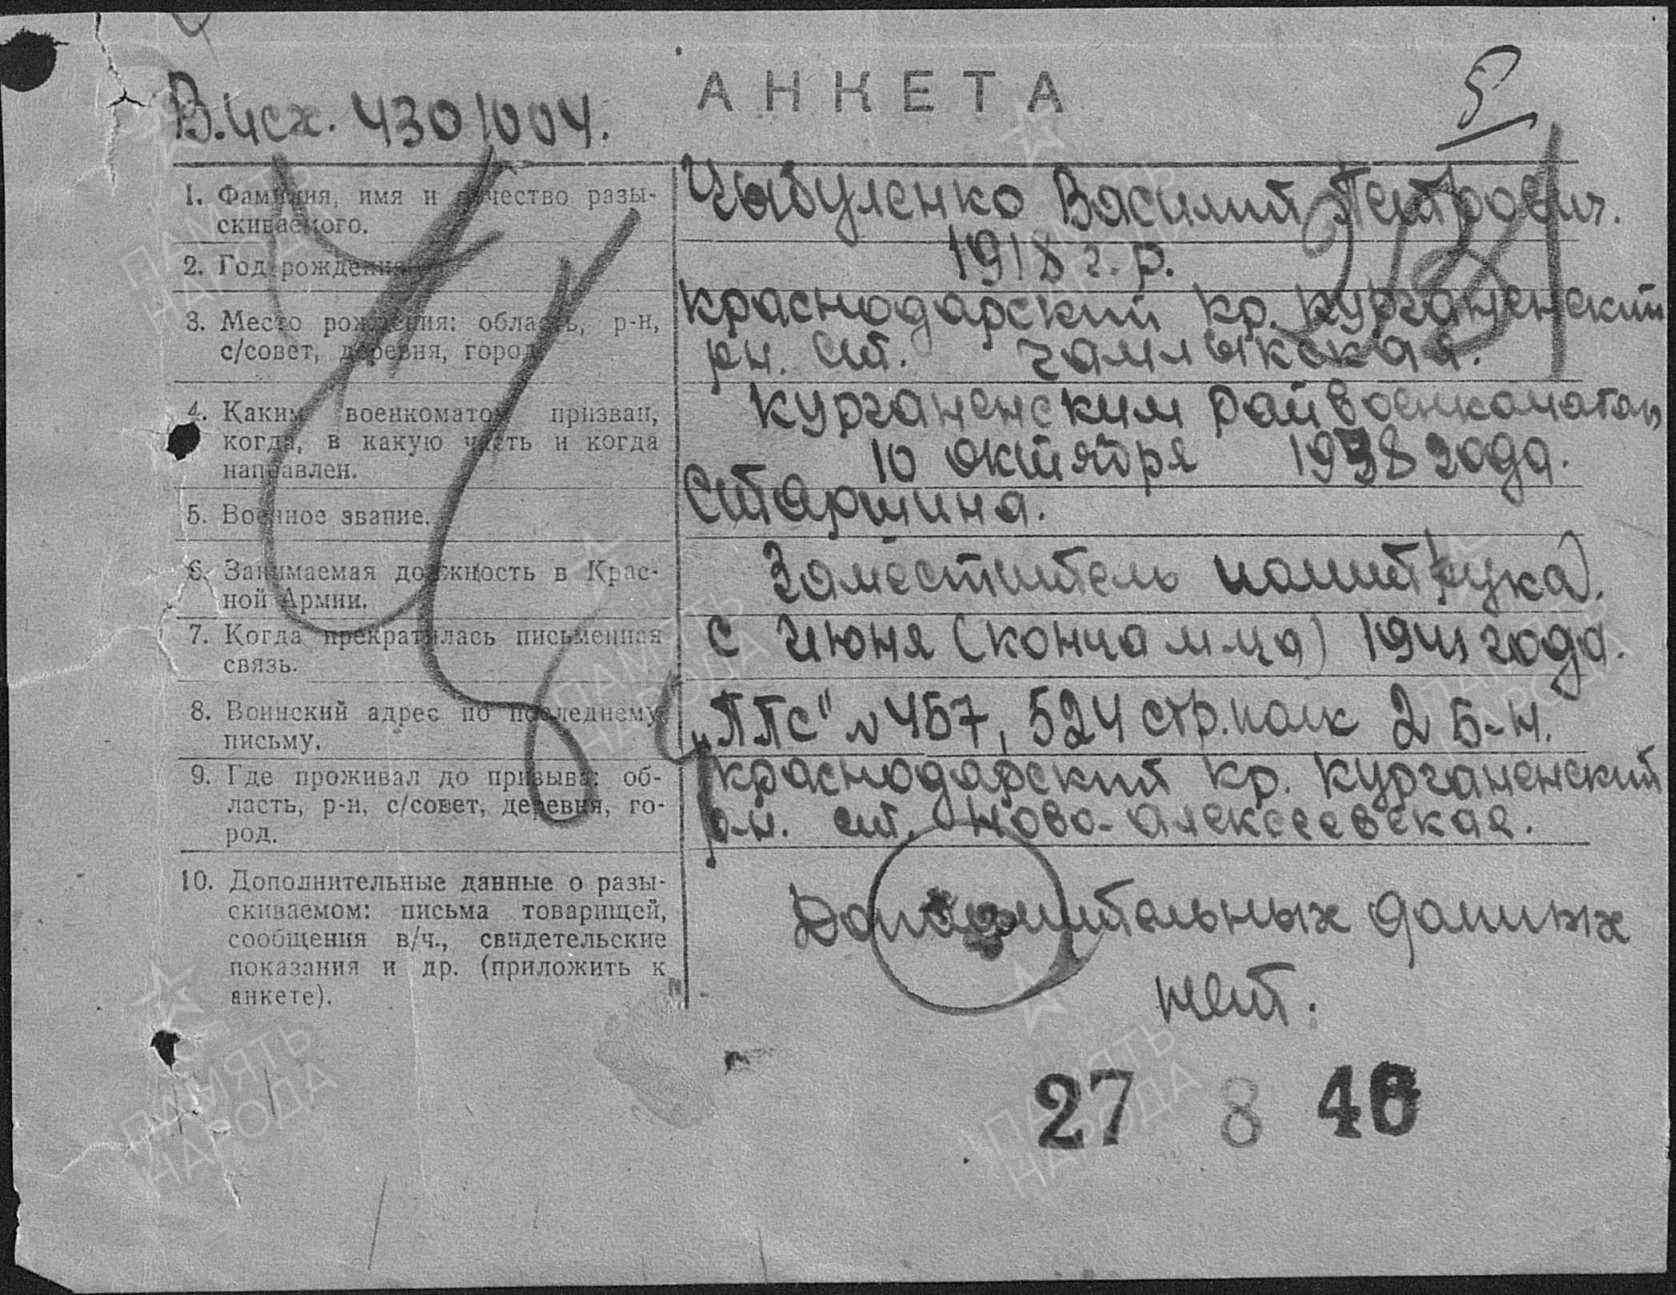 АНКЕТА
5
В.исх. 4301004.
1. Фамилия, имя и отчество разыскиваемого.
Цыбуленко Василий Петрович.
2. Год рождения
1918 г.р.
3. Место рождения: область, р-н,
с/совет, деревня, город
Краснодарский кр. Курганенский
рн. ст. Чамлыкская.
4. Каким военкоматом призван,
когда, в какую часть и когда
направлен.
Курганенским райвоенкоматом
10 октября 1938 года.
5. Военное звание.
Старшина.
6. Занимаемая должность в Крас-
ной Армии.
Заместитель политрука.
7. Когда прекратилась письменная
связь.
С Июня (конца м-ца) 1941 года.
8. Воинский адрес по последнему
письму.
„ППС" № 457, 524 стр. полк 2 б-н.
9. Где проживал до призыва: об-
ласть, р-н, с/совет, деревня, го-
род.
Краснодарский кр. Курганенский
р-н. ст. Ново-Алексеевская.
10. Дополнительные данные о разы-
скиваемом: письма товарищей,
сообщения в/ч., свидетельские
показания и др. (приложить к
анкете).
Дополнительных данных
нет.
27 8 46
ПАМЯТЬ
НАРОДА